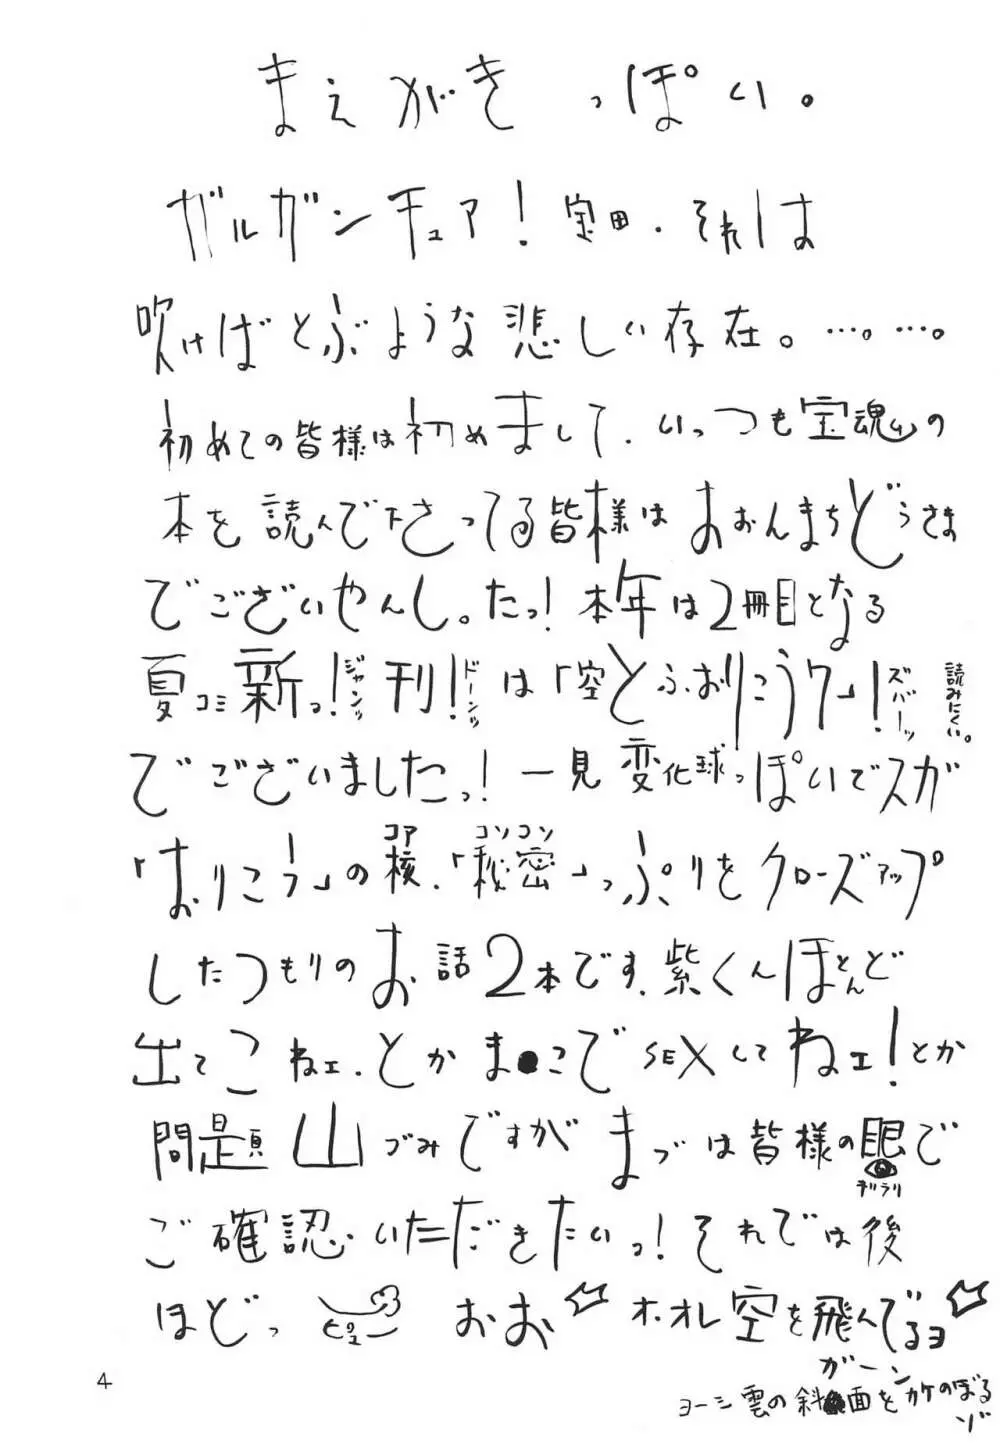 まえがきっぽい。
ガルガンチュア！宝田・それは
吹けばとぶような悲しい存在。…。…。
初めての皆様は初めまして、いっつも宝魂ムの
本を読んで下さってる皆様はおおんまちどうさま
でございやんし。たっ！本年は2冊目となる
夏コミ新っ！ジャンッ刊！ドーンッは「空とふおりこうワー」！ズバーッ
読みにくい。
でございましたっ！一見変化球っぽいでスガ
「おりこう」の核コア、「秘密コソコソ」っぷりをクローズアップ
したつもりのお話2本です、紫くんほとんど
出てこねェ、とかま●こでSEXしてねェ！とか
問題山づみですがまづは皆様の眼で
ギラリ
ご確認いただきたいっ！それでは後
ほどっ ピュー おお オ、オレ空を飛んでるヨ
ガーン
ヨーシ雲の斜面をカケのぼる
ゾ
4